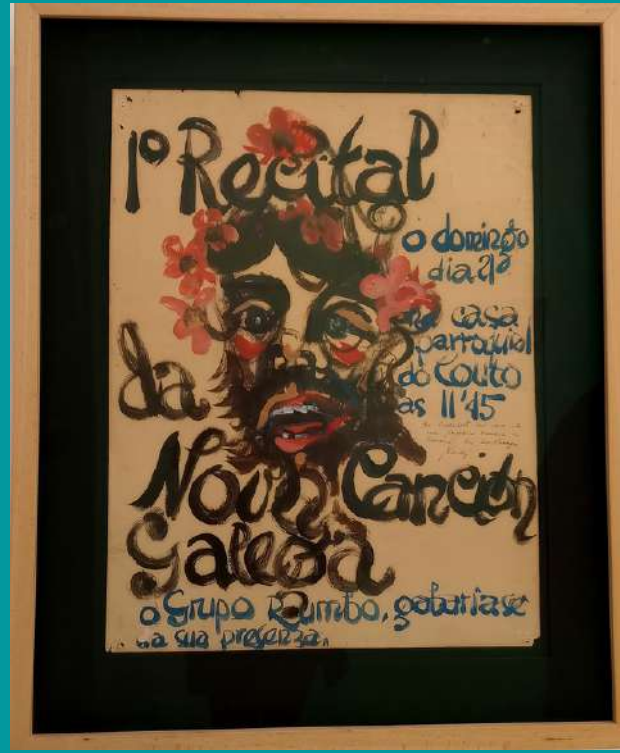 1º Recital
o domingo
dia
na casa
parroquial
do Couto
as 11'45
da
Nova Canción
galega
o Grupo Rumbo, gabariase
da sua presenza.